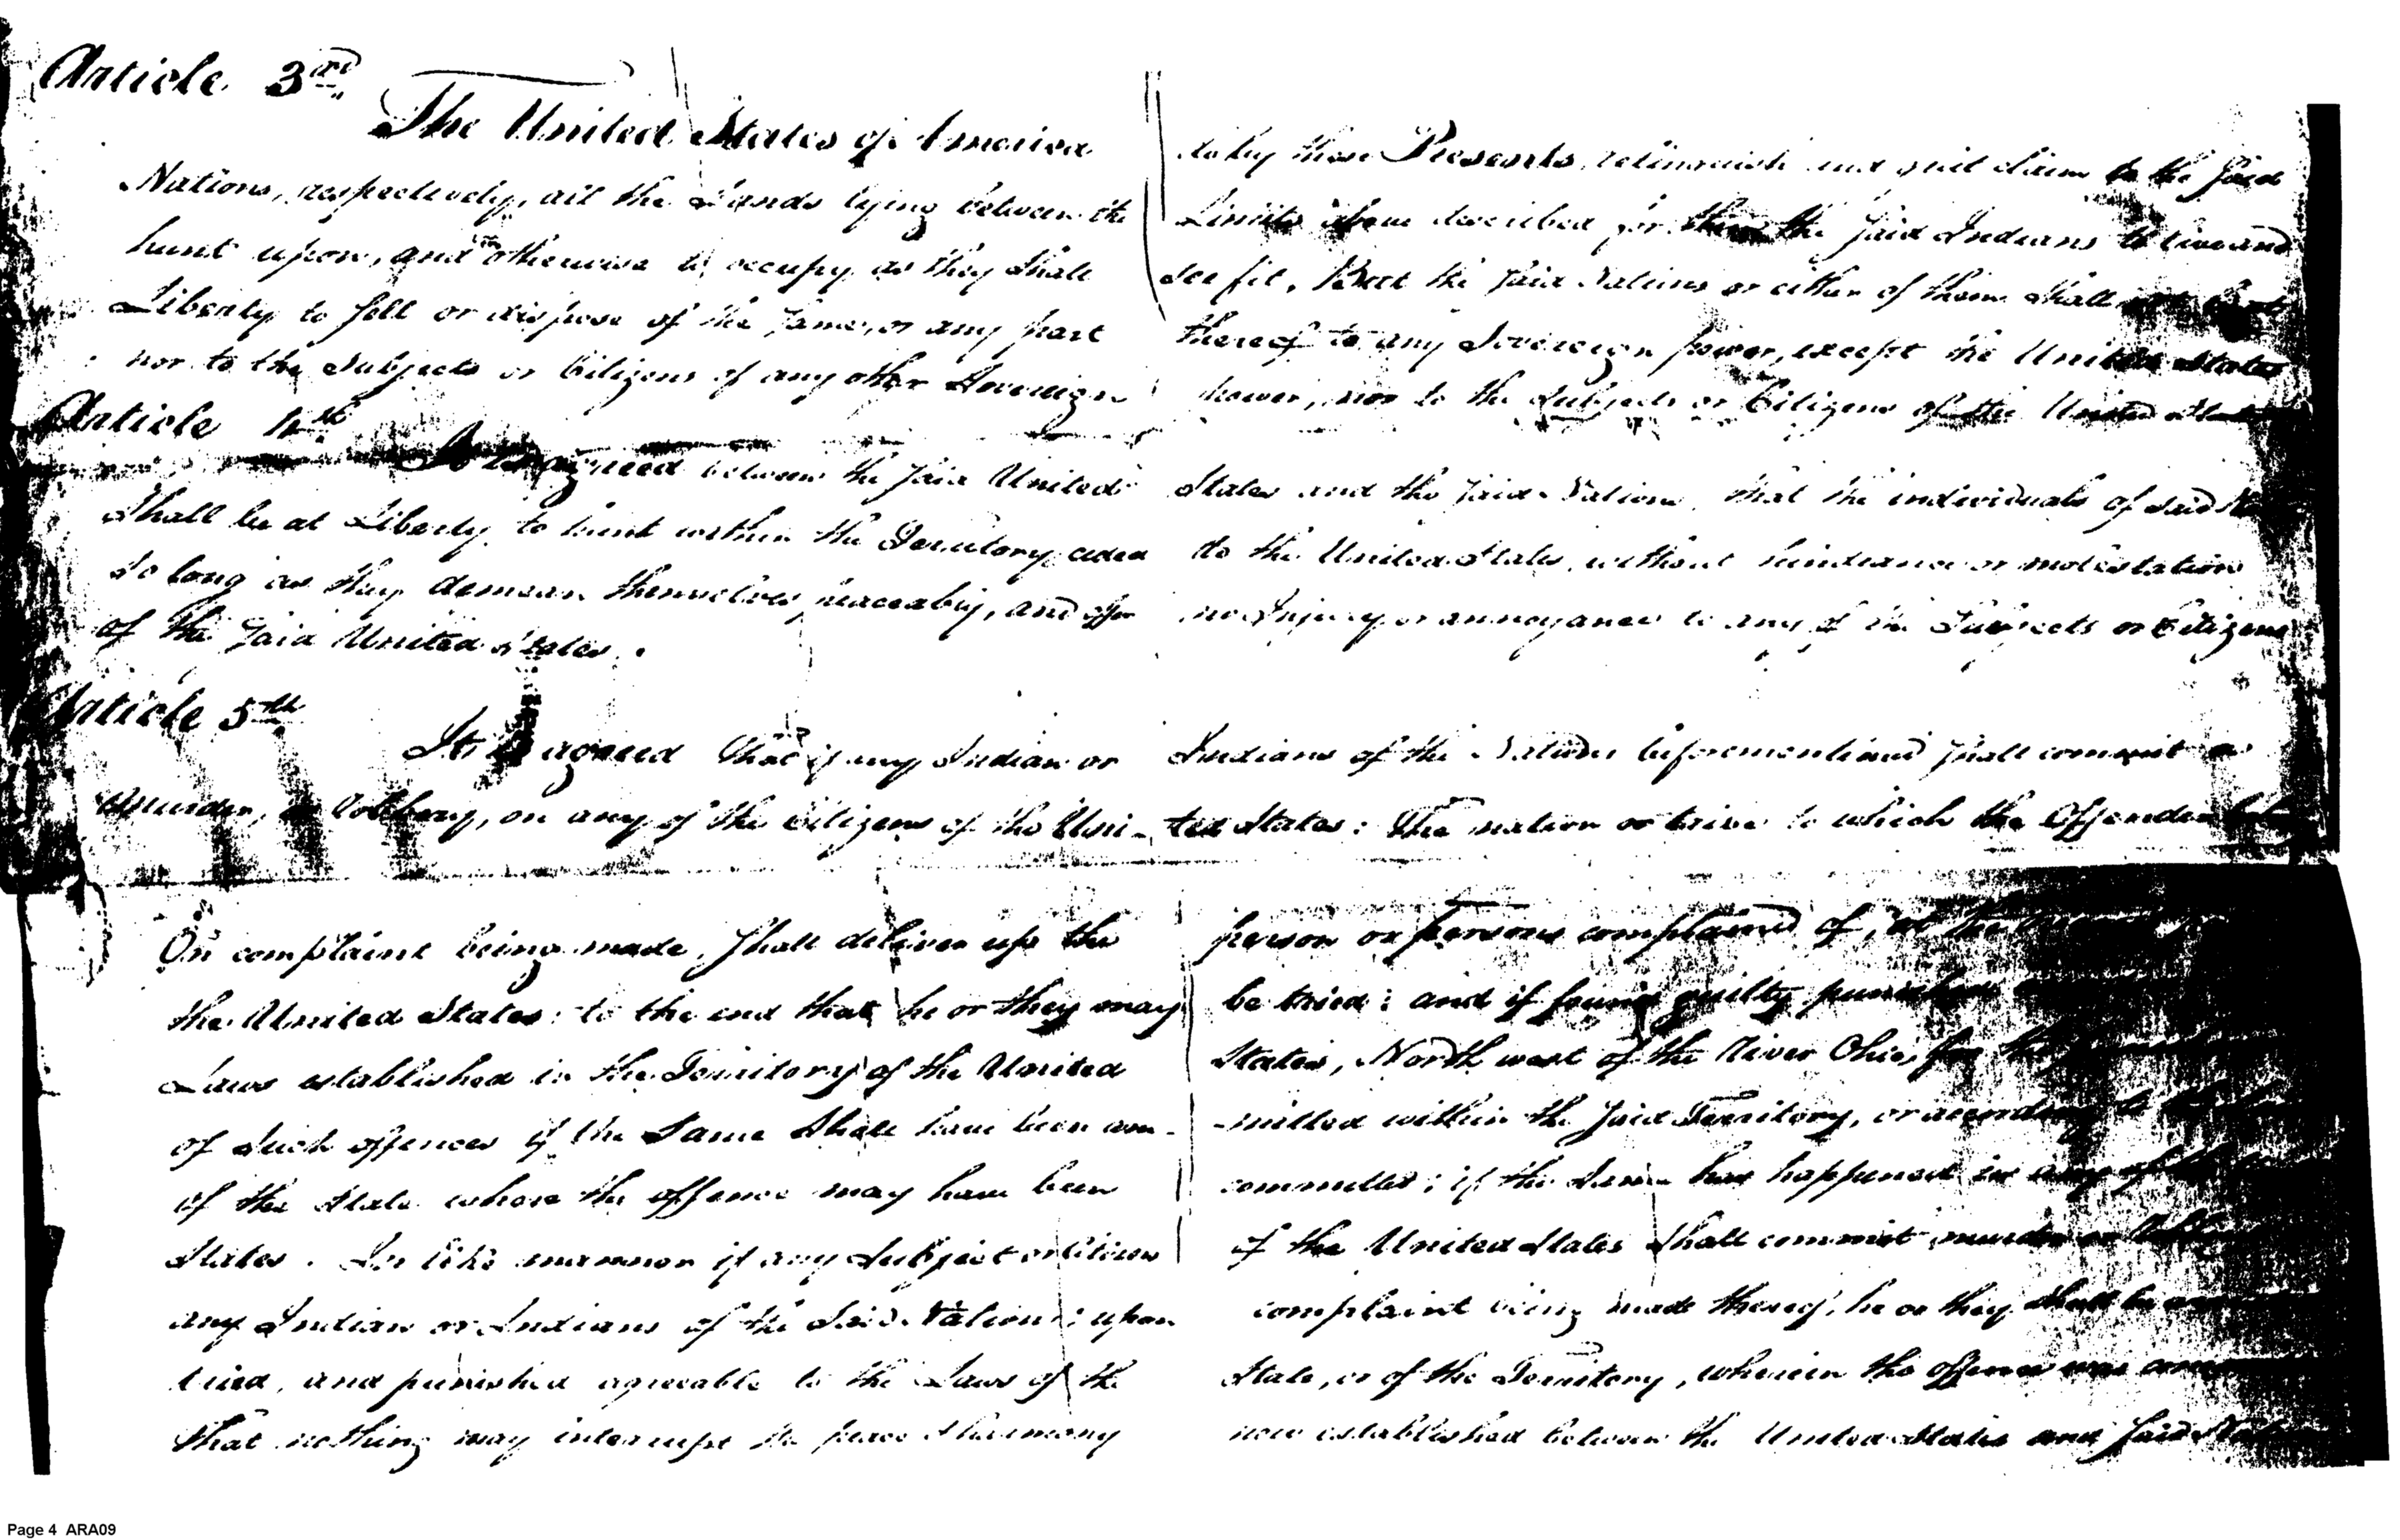 Article 3rd
The United States of America do by these Presents relinquish and quit claim to the said
Nations, respectively, all the Lands lying between the Limits above described for them the said Indians to live and
hunt upon, and otherwise to occupy as they shall see fit, But the said Nations or either of them shall not be at
Liberty to sell or dispose of the same, or any part thereof to any Sovereign power, except the United States
nor to the Subjects or Citizens of any other Sovereign power, nor to the Subjects or Citizens of the United States
Article 4th
It is agreed between the said United States and the said Nations, that the individuals of said
Shall be at Liberty to hunt within the Territory ceded to the United States, without hindrance or molestation
So long as they demean themselves peaceably, and offer no Injury or annoyance to any of the Subjects or Citizens
of the said United States.
Article 5th
It is agreed that if any Indian or Indians of the Nations beforementioned shall commit a
Murder, or Robbery, on any of the Citizens of the Uni-ted States: The nation or tribe to which the Offender
On complaint being made, Shall deliver up the person or persons complained of, at the
the United States: to the end that he or they may be tried; and if found guilty punished
Laws established in the Territory of the United States, North west of the River Ohio, for the
of such offences if the Same Shall have been com--mitted within the said Territory, or according to
of the State where the offence may have been committed; if the Same has happened in any of the
States. In like manner if any Subject or Citizen of the United States Shall commit murder or
any Indian or Indians of the Said Nations; upon complaint being made thereof, he or they shall be
tried, and punished agreeable to the Laws of the State, or of the Territory, wherein the offence was
that nothing may interrupt the peace & harmony now established between the United States and said
Page 4 ARA09